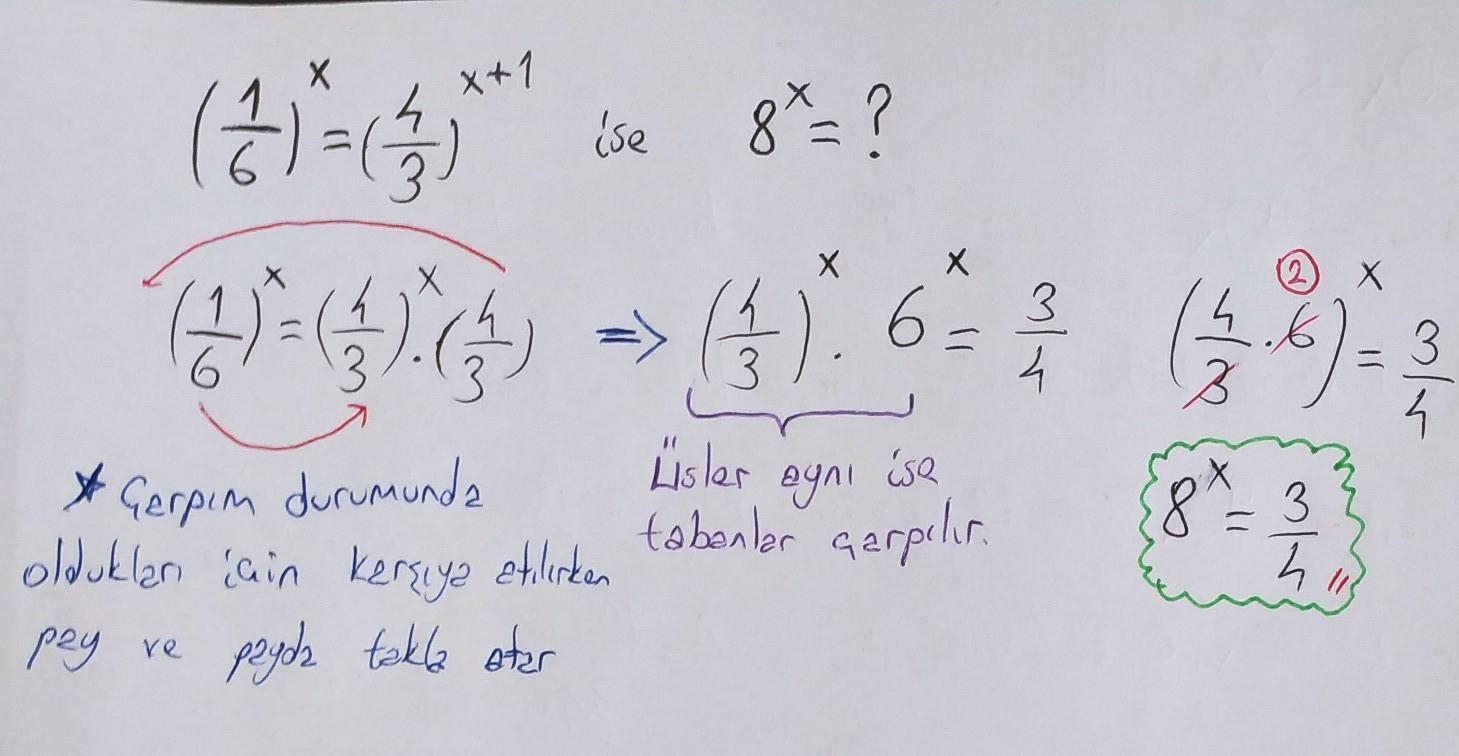 (1/6)^x = (4/3)^x+1 ise 8^x = ?
(1/6)^x = (4/3)^x . (4/3) ⇒ (4/3)^x . 6^x = 3/4 (4/3 . 6)^x = 3/4
2
* Çarpım durumunda
oldukları için karşıya atılırken
pay ve payda takla atar
Üsler aynı ise
tabanlar çarpılır.
8^x = 3/4 //